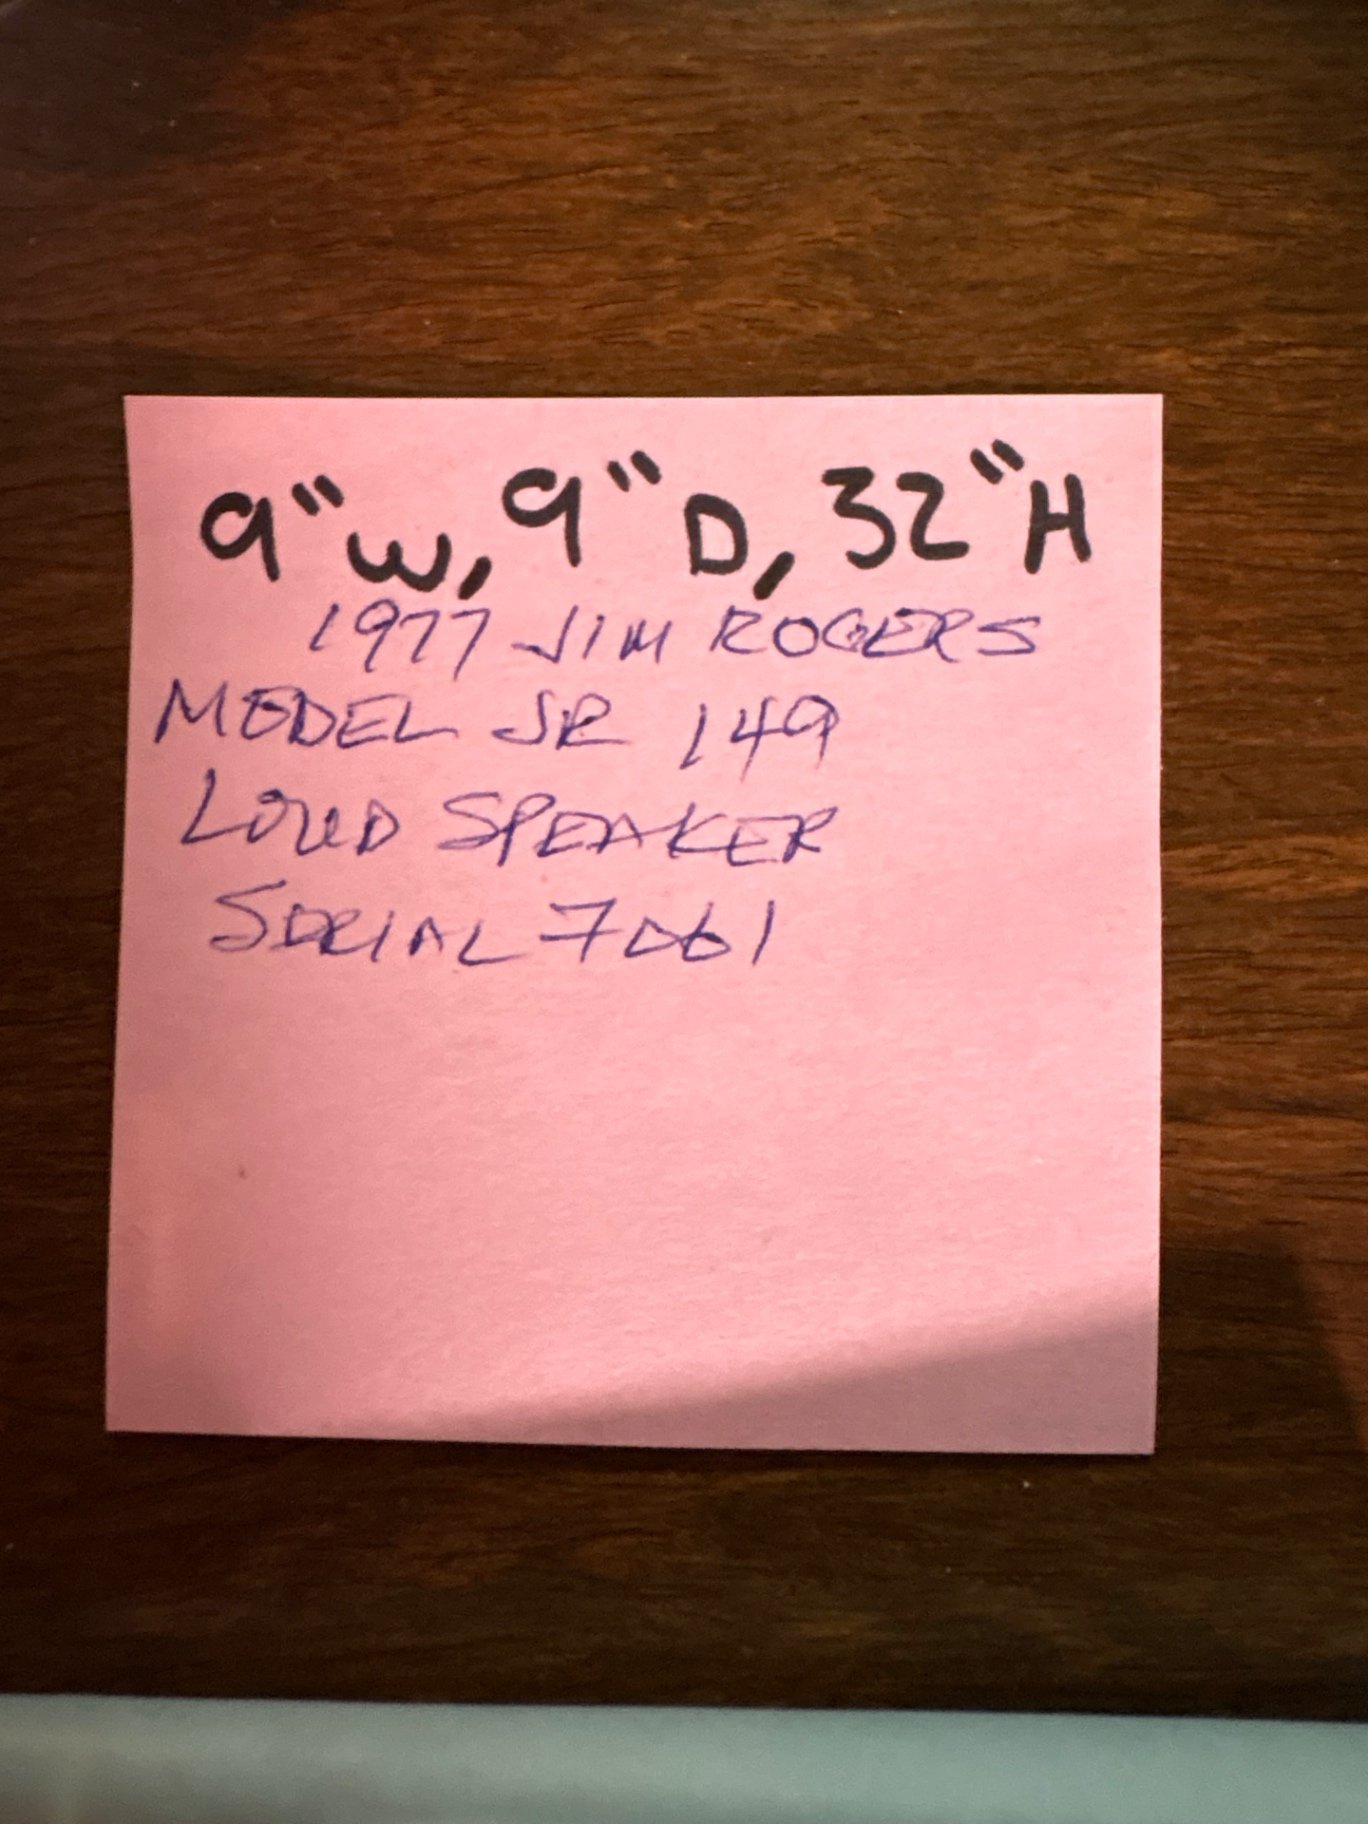 9"W, 9"D, 32"H
1977 JIM ROGERS
MODEL JR 149
LOUD SPEAKER
SERIAL 7061